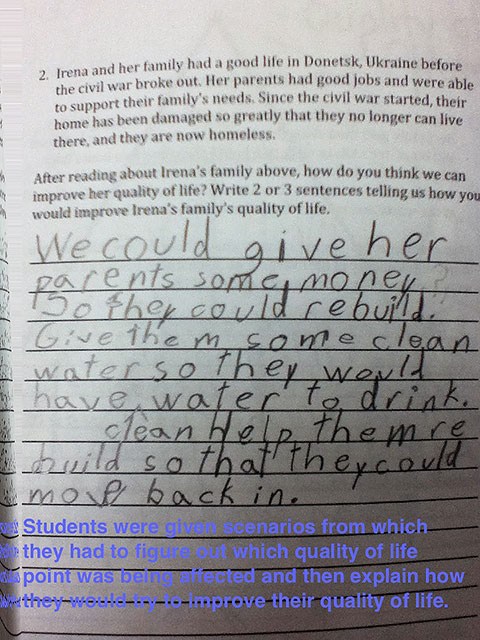 2. Irena and her family had a good life in Donetsk, Ukraine before
the civil war broke out. Her parents had good jobs and were able
to support their family's needs. Since the civil war started, their
home has been damaged so greatly that they no longer can live
there, and they are now homeless.
After reading about Irena's family above, how do you think we can
improve her quality of life? Write 2 or 3 sentences telling us how you
would improve Irena's family's quality of life.
We could give her
parents some money
So they could rebuild.
Give them some clean
water so they would
have water to drink.
clean Help them re
build so that they could
move back in.
Students were given scenarios from which
they had to figure out which quality of life
point was being affected and then explain how
they would try to improve their quality of life.